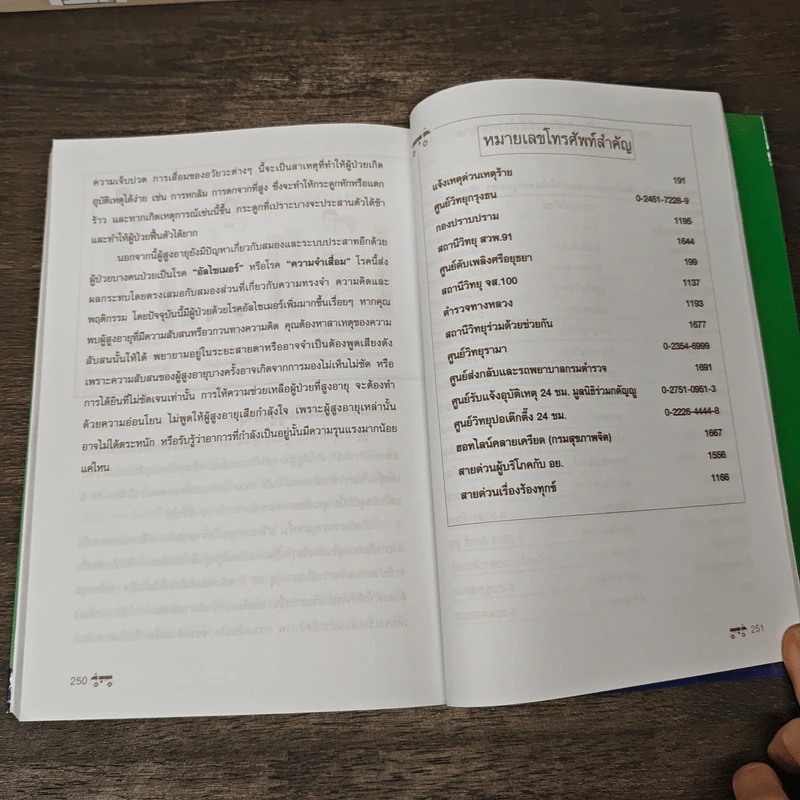 ความเจ็บปวด การเสื่อมของอวัยวะต่างๆ นี้จะเป็นสาเหตุที่ทำให้ผู้ป่วยเกิด
อุบัติเหตุได้ง่าย เช่น การหกล้ม การตกจากที่สูง ซึ่งจะทำให้กระดูกหักหรือแตก
ร้าว และหากเกิดเหตุการณ์เช่นนี้ขึ้น กระดูกที่เปราะบางจะประสานตัวได้ช้า
และทำให้ผู้ป่วยฟื้นตัวได้ยาก
นอกจากนี้ผู้สูงอายุยังมีปัญหาเกี่ยวกับสมองและระบบประสาทอีกด้วย
ผู้ป่วยบางคนป่วยเป็นโรค "อัลไซเมอร์" หรือโรค "ความจำเสื่อม" โรคนี้ส่ง
ผลกระทบโดยตรงเสมอกับสมองส่วนที่เกี่ยวกับความทรงจำ ความคิดและ
พฤติกรรม โดยปัจจุบันนี้มีผู้ป่วยด้วยโรคอัลไซเมอร์เพิ่มมากขึ้นเรื่อยๆ หากคุณ
พบผู้สูงอายุที่มีความสับสนหรือวกวนทางความคิด คุณต้องหาสาเหตุของความ
สับสนนั้นให้ได้ พยายามอยู่ในระยะสายตาหรืออาจจำเป็นต้องพูดเสียงดัง
เพราะความสับสนของผู้สูงอายุบางครั้งอาจเกิดจากการมองไม่เห็นไม่ชัด หรือ
การได้ยินที่ไม่ชัดเจนเท่านั้น การให้ความช่วยเหลือผู้ป่วยที่สูงอายุ จะต้องทำ
ด้วยความอ่อนโยน ไม่พูดให้ผู้สูงอายุเสียกำลังใจ เพราะผู้สูงอายุเหล่านั้น
อาจไม่ได้ตระหนัก หรือรับรู้ว่าอาการที่กำลังเป็นอยู่นั้นมีความรุนแรงมากน้อย
แค่ไหน
250
หมายเลขโทรศัพท์สำคัญ
แจ้งเหตุด่วนเหตุร้าย 191
ศูนย์วิทยุกรุงธน 0-2451-7228-9
กองปราบปราม 1195
สถานีวิทยุ สวพ.91 1644
ศูนย์ดับเพลิงศรีอยุธยา 199
สถานีวิทยุ จส.100 1137
ตำรวจทางหลวง 1193
สถานีวิทยุร่วมด้วยช่วยกัน 1677
ศูนย์วิทยุรามา 0-2354-6999
ศูนย์ส่งกลับและรถพยาบาลกรมตำรวจ 1691
ศูนย์รับแจ้งอุบัติเหตุ 24 ชม. มูลนิธิร่วมกตัญญู 0-2751-0951-3
ศูนย์วิทยุปอเต็กตึ๊ง 24 ชม. 0-2226-4444-8
ฮอทไลน์คลายเครียด (กรมสุขภาพจิต) 1667
สายด่วนผู้บริโภคกับ อย. 1556
สายด่วนเรื่องร้องทุกข์ 1166
251